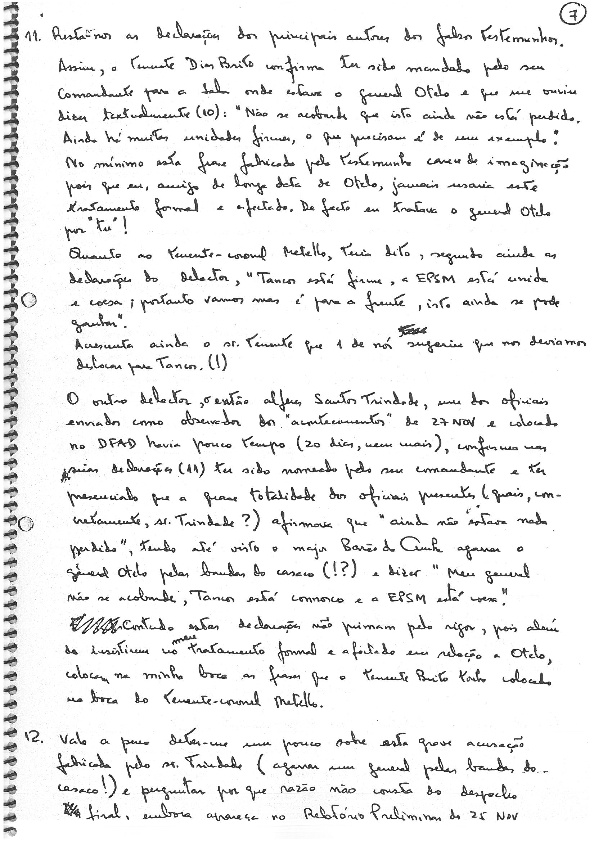 7
11. Restam-nos as declarações dos principais autores dos falsos testemunhos.
Assim, o tenente Dias Brito confirma ter sido mandado pelo seu
comandante para a sala onde estava o general Otelo e que me ouviu
dizer textualmente (10): "Não se acobarde que isto ainda não está perdido.
Ainda há muitas unidades firmes, o que precisam é de um exemplo".
No mínimo esta frase fabricada pelo testemunho carece de imaginação
pois que eu, amigo de longa data de Otelo, jamais usaria este
tratamento formal e afectado. De facto eu tratava o general Otelo
por "tu"!
Quanto ao tenente-coronel Metello, teria dito, segundo ainda as
declarações do delactor, "Tancos está firme, a EPSM está unida
e coesa; portanto vamos mas é para a frente, isto ainda se pode
ganhar".
Acrescenta ainda o sr. tenente que 1 de nós sugeriu que nos devíamos
deslocar para Tancos. (!)
O outro delactor, o então alferes Santos Trindade, um dos oficiais
enviados como observador dos "acontecimentos" de 27 NOV e colocado
no DFAD havia pouco tempo (20 dias, nem mais), confirma nas
suas declarações (11) ter sido nomeado pelo seu comandante e ter
presenciado que a quase totalidade dos oficiais presentes (quais, con-
cretamente, sr. Trindade?) afirmava que "ainda não estava nada
perdido", tendo até visto o major Barão da Cunha agarrar o
general Otelo pelas bandas do casaco (!?) e dizer "Meu general
não se acobarde, Tancos está connosco e a EPSM está coesa".
Contudo estas declarações não primam pelo rigor, pois além
de insistirem no meu tratamento formal e afectado em relação a Otelo,
colocam na minha boca as frases que o tenente Brito tinha colocado
na boca do tenente-coronel Metello.
12. Vale a pena deter-me um pouco sobre esta grave acusação
fabricada pelo sr. Trindade (agarrar um general pelas bandas do
casaco!) e perguntar por que razão não consta do despacho
final, embora apareça no Relatório Preliminar do 25 NOV